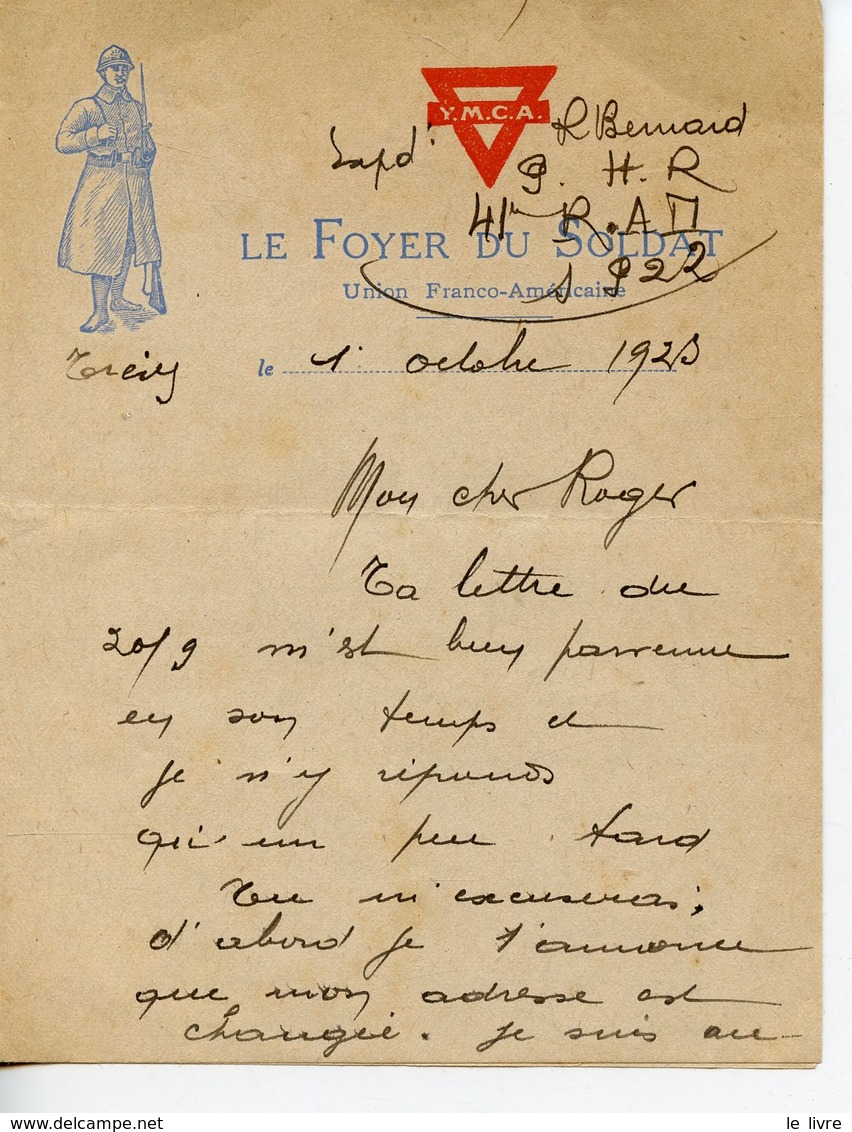 Y.M.C.A.
R Bernard
P. H. R
41e R.A.D
S P 22
LE FOYER DU SOLDAT
Union Franco-Américaine
le 1er octobre 1923
Mon cher Roger
Ta lettre du
20/9 m'est bien parvenue
en son temps et
je n'y réponds
qu'un peu tard
Tu m'excuseras;
d'abord je t'annonce
que mon adresse est
changée. Je suis au
le livre